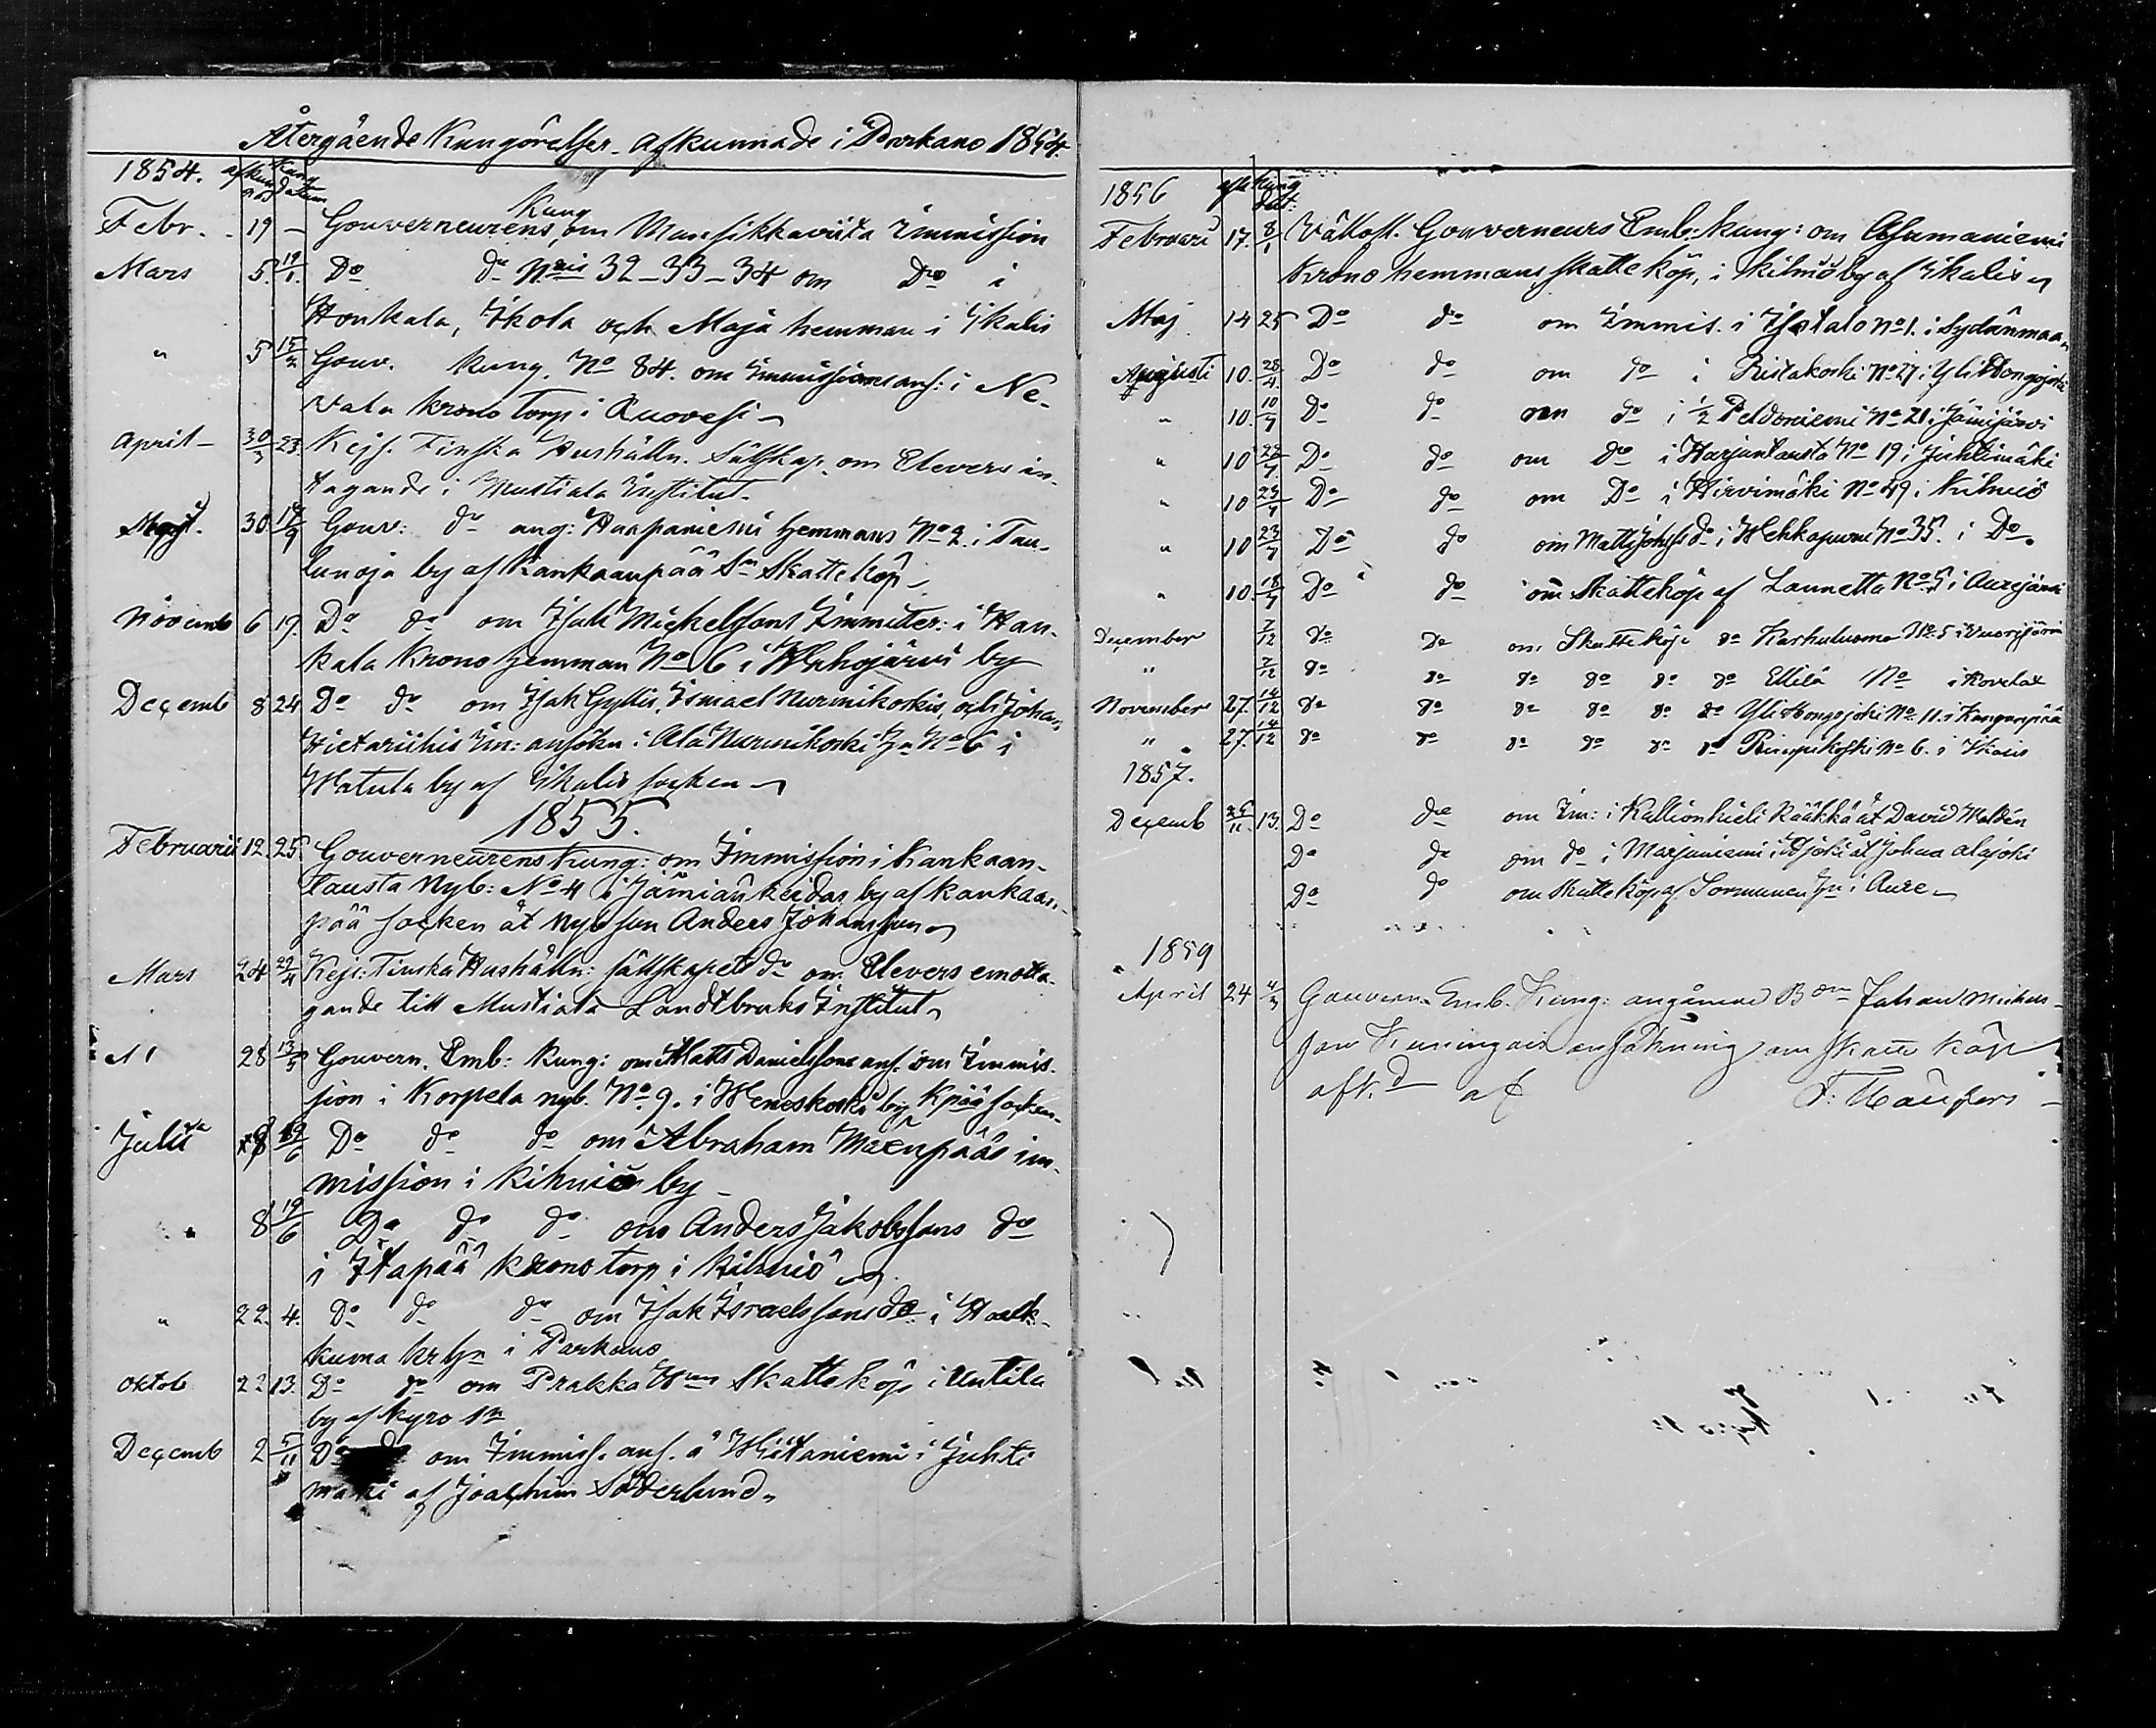 Återgående Kungörelser afkunnade i Parkano 1854.
1854. afkun nad Kung datum
Febr. 19 — Gouverneurens Kung om Mansikkaviita Immission
Mars 5. 19/1. Do do Nris 32–33–34 om Do i
Honkala, Ikola och Maja hemman i Ikalis
" 5 15/2 Gouv. Kung. No 84. om Immissions ans: i Ne-
vala krono torp i Ruovesi
April 30/3 23 Kejs. Finska Hushålln. Sällskap. om Elevers in-
tagande i Mustiala Institut.
30 Gouv: do ang: Haapaniemi hemmans No 2. i
by af Kankaanpää Sn Skatteköp
Novemb 6 19. Do do om Michelssons i
kala Krono hemman No 6 i by
Decemb 8 24 Do do om Isak Gyllis, Ismael Nurmikoskis, och Johan
Hietariihis Im: ansökn i Ala Nurmikoski Hn No 6 i
Watula by af Ikalis socken
1855.
Februarii 12. 25. Gouverneurens Kung: om Immission i Kankaan-
tausta Nyb: No 4 i Jämiänkeidas by af Kankaan-
pää socken åt Nyb son Anders Johansson
Mars 24 Kejs: Finska Hushålln: sällskapets do om Elevers emotta-
gande till Mustiala Landtbruks Institut
28 13/3 Gouvern. Emb: Kung: om Matts Danielssons ans. om Immis-
sion i Korpela nyb. No 9. i Weneskoski by Kpää socken
Julii 8 19/6 Do do do om Abraham Mäenpääs im-
mission i Kihniö by
" 8 19/6 Do do do om Anders Jakobssons do
i Itäpää krono torp i Kihniö
" 22. 4. Do do do om Isak Israelssons do i
kuma i Parkano
Oktob 22 13. Do do om Prakka Skatteköp i
by af Kyro sn
Decemb 2 5/11 Do om Immiss. ans. å Wiitaniemi i Juhti
mäki af Joachim Söderlund
1856 Kung dat:
Februari 17. 8/1 Wällofl. Gouverneurs Emb: Kung: om
Krono hemmans skatteköp, i Kihniö by af Ikalis
Maj 14 25 Do do om Immis. i Isotalo No 1. i Sydänmaa
Augusti 10. 28/4. Do do om do i Ristakoski No 27 i Yli Honganjoki
" 10. 10/7 Do do om do i 1/2 Peldoniemi No 21 i Jämijärvi
" 10 Do do om do i Harjuntausta No 19 i Juhtimäki
" 10 23/7 Do do om Do i Hirvimäki No 49 i Kihniö
" 10 23/7 Do do om do i No 35. i Do
" 10. 18/7 Do do om Skatteköp af Launetta No 5 i Aurejärvi
December 7/12 do do om Skatteköp do Karhuluoma No 5 i
" 7/12 do do do do do do Ellilä No i
November 27. 14/12 do do do do do do Yli Hongojoki No 11. i Kangaspää
" 27. 14/12 do do do do do do No 6. i Ikalis
1857.
Decemb 13. Do do om Im: i Kallionkieli åt David
Do do om do i Marjaniemi i åt Johan Alajoki
Do do om skatteköp af Sormunen Hn i Aure
1859
April 24 4/3 Gouvern. Emb. Kung: angående Johan
son ansökning om skatte köp
afk.d af